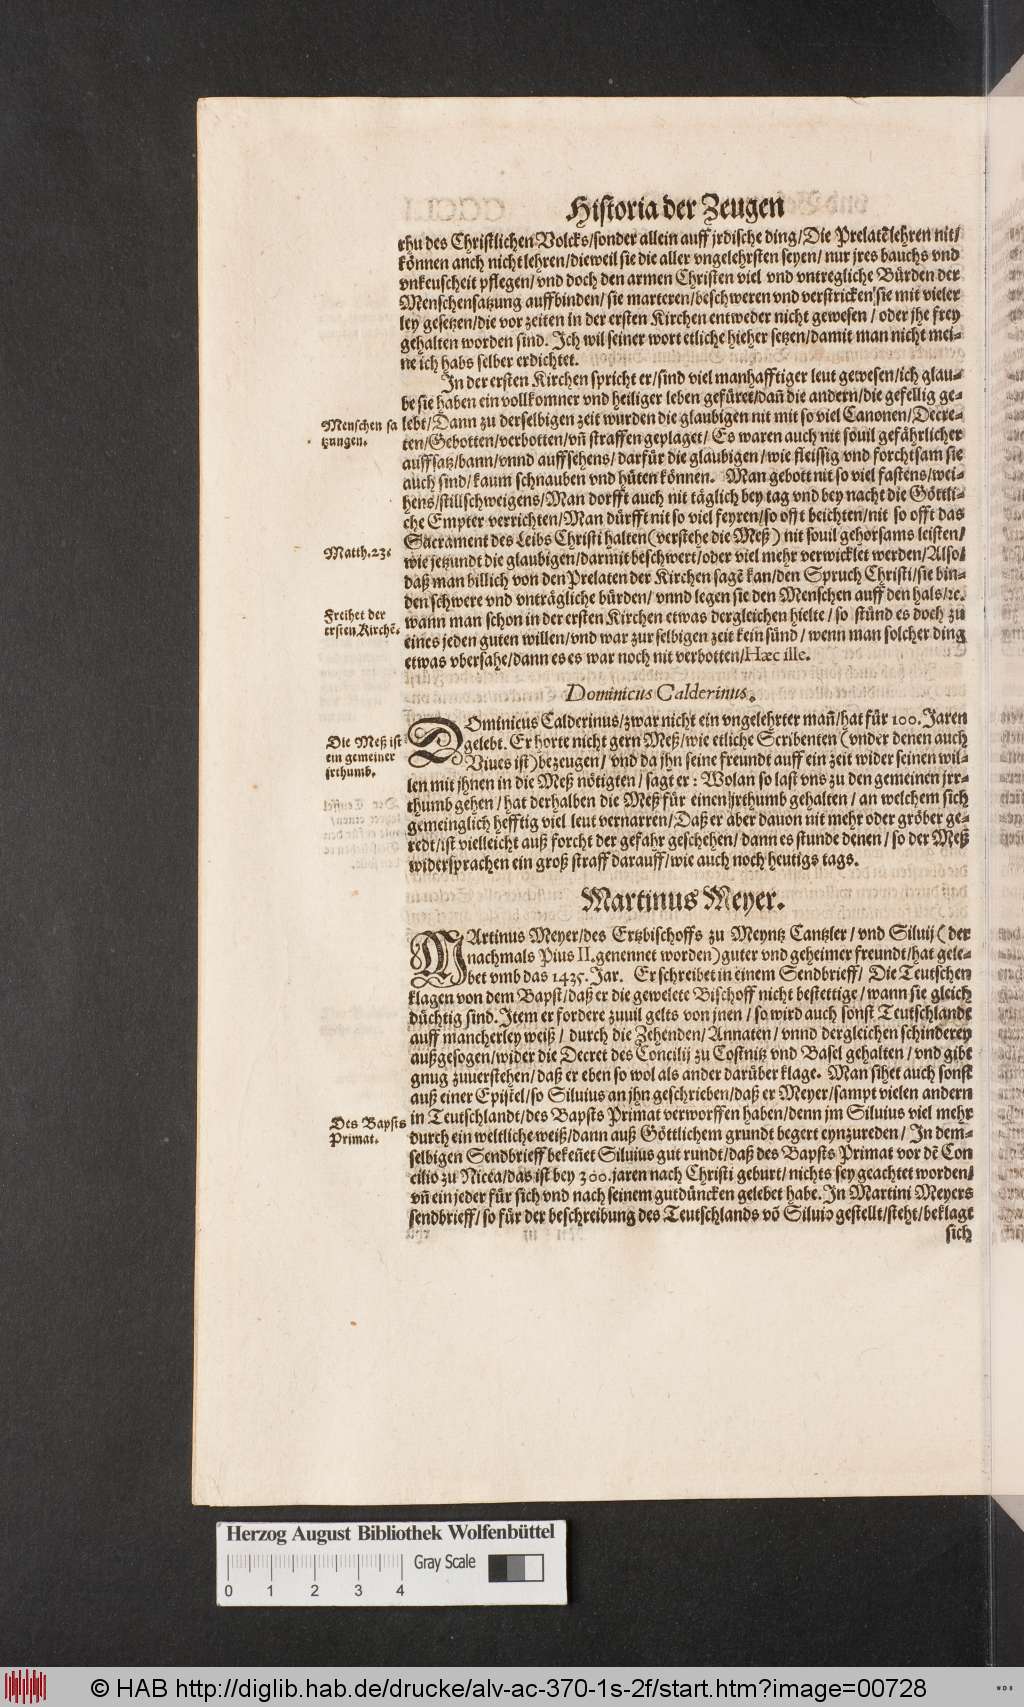 Historia der Zeugen
rhu des Christlichen Volcks/sonder allein auff jrdische ding/Die Prelatẽ lehren nit/
können anch nicht lehren/dieweil sie die aller vngelehrsten seyen/ nur jres bauchs vnd
vnkeuscheit pflegen/ vnd doch den armen Christen viel vnd vntregliche Bürden der
Menschensatzung auffbinden/ sie marteren/beschweren vnd verstricken sie mit vieler
ley gesetzen/die vor zeiten in der ersten Kirchen entweder nicht gewesen / oder jhe frey
gehalten worden sind. Ich wil seiner wort etliche hieher setzen/damit man nicht mei-
ne ich habs selber erdichtet.
In der ersten Kirchen spricht er/sind viel manhafftiger leut gewesen/ich glau-
be sie haben ein vollkomner vnd heiliger leben gefüret/dañ die andern/die gefellig ge-
Menschen sa
tzungen.
lebt/Dann zu derselbigen zeit wurden die glaubigen nit mit so viel Canonen/Decre-
ten/Gebotten/verbotten/vñ straffen geplaget/ Es waren auch nit souil gefährlicher
auffsatz/bann/vnnd auffsehens/ darfür die glaubigen/wie fleissig vnd forchtsam sie
auch sind/kaum schnauben vnd hüten können. Man gebott nit so viel fastens/wei-
hens/stillschweigens/Man dorfft auch nit täglich bey tag vnd bey nacht die Göttli-
che Empter verrichten/Man dürfft nit so viel feyren/so offt beichten/nit so offt das
Sacrament des Leibs Christi halten(verstehe die Meß) nit souil gehorsams leisten/
Matth.23.
wie jetzundt die glaubigen/darmit beschwert/oder viel mehr verwicklet werden/Also/
daß man billich von den Prelaten der Kirchen sagẽ kan/den Spruch Christi/sie bin-
den schwere vnd vnträgliche bürden/ vnnd legen sie den Menschen auff den hals/ꝛc.
Freihet der
ersten Kirchẽ.
wann man schon in der ersten Kirchen etwas dergleichen hielte/ so stünd es doch zu
eines jeden guten willen/vnd war zur selbigen zeit kein sünd / wenn man solcher ding
etwas vbersahe/dann es es war noch nit verbotten/Hæc ille.
Dominicus Calderinus.
DOminicus Calderinus/zwar nicht ein vngelehrter mañ/hat für 100. Jaren
Die Meß ist
ein gemeiner
jrthumb.
gelebt. Er horte nicht gern Meß/wie etliche Scribenten (vnder denen auch
Viues ist)bezeugen/ vnd da jhn seine freundt auff ein zeit wider seinen wil-
len mit jhnen in die Meß nötigten/ sagt er: Wolan so last vns zu den gemeinen jrr-
thumb gehen / hat derhalben die Meß für einen jrthumb gehalten / an welchem sich
gemeinglich hefftig viel leut vernarren/Daß er aber dauon nit mehr oder gröber ge-
redt/ist vielleicht auß forcht der gefahr geschehen/ dann es stunde denen / so der Meß
widersprachen ein groß straff darauff/wie auch noch heutigs tags.
Martinus Meyer.
MArtinus Meyer/des Ertzbischoffs zu Meyntz Cantzler/ vnd Siluij ( der
nachmals Pius II.genennet worden)guter vnd geheimer freundt/hat gele-
bet vmb das 1435. Jar. Er schreibet in einem Sendbrieff/ Die Teutschen
klagen von dem Bapst/daß er die gewelete Bischoff nicht bestettige/wann sie gleich
düchtig sind. Item er fordere zuuil gelts von jnen / so wird auch sonst Teutschlandt
auff mancherley weiß / durch die Zehenden/Annaten/ vnnd dergleichen schinderey
außgesogen/wider die Decret des Concilij zu Costnitz vnd Basel gehalten / vnd gibt
gnug zuuerstehen/daß er eben so wol als ander darüber klage. Man sihet auch sonst
auß einer Epistel/so Siluius an jhn geschrieben/daß er Meyer/sampt vielen andern
Des Bapsts
Primat.
in Teutschlandt/des Bapsts Primat verworffen haben/denn jm Siluius viel mehr
durch ein weltliche weiß/dann auß Göttlichem grundt begert eynzureden/ In dem-
selbigen Sendbrieff bekeñet Siluius gut rundt/daß des Bapsts Primat vor dẽ Con
cilio zu Nicea/das ist bey 300.jaren nach Christi geburt/nichts sey geachtet worden/
vñ ein jeder für sich vnd nach seinem gutdüncken gelebet habe. In Martini Meyers
sendbrieff/ so für der beschreibung des Teutschlands võ Siluio gestellt/steht/beklagt
sich
Herzog August Bibliothek Wolfenbüttel
0 1 2 3 4 Gray Scale
© HAB http://diglib.hab.de/drucke/alv-ac-370-1s-2f/start.htm?image=00728